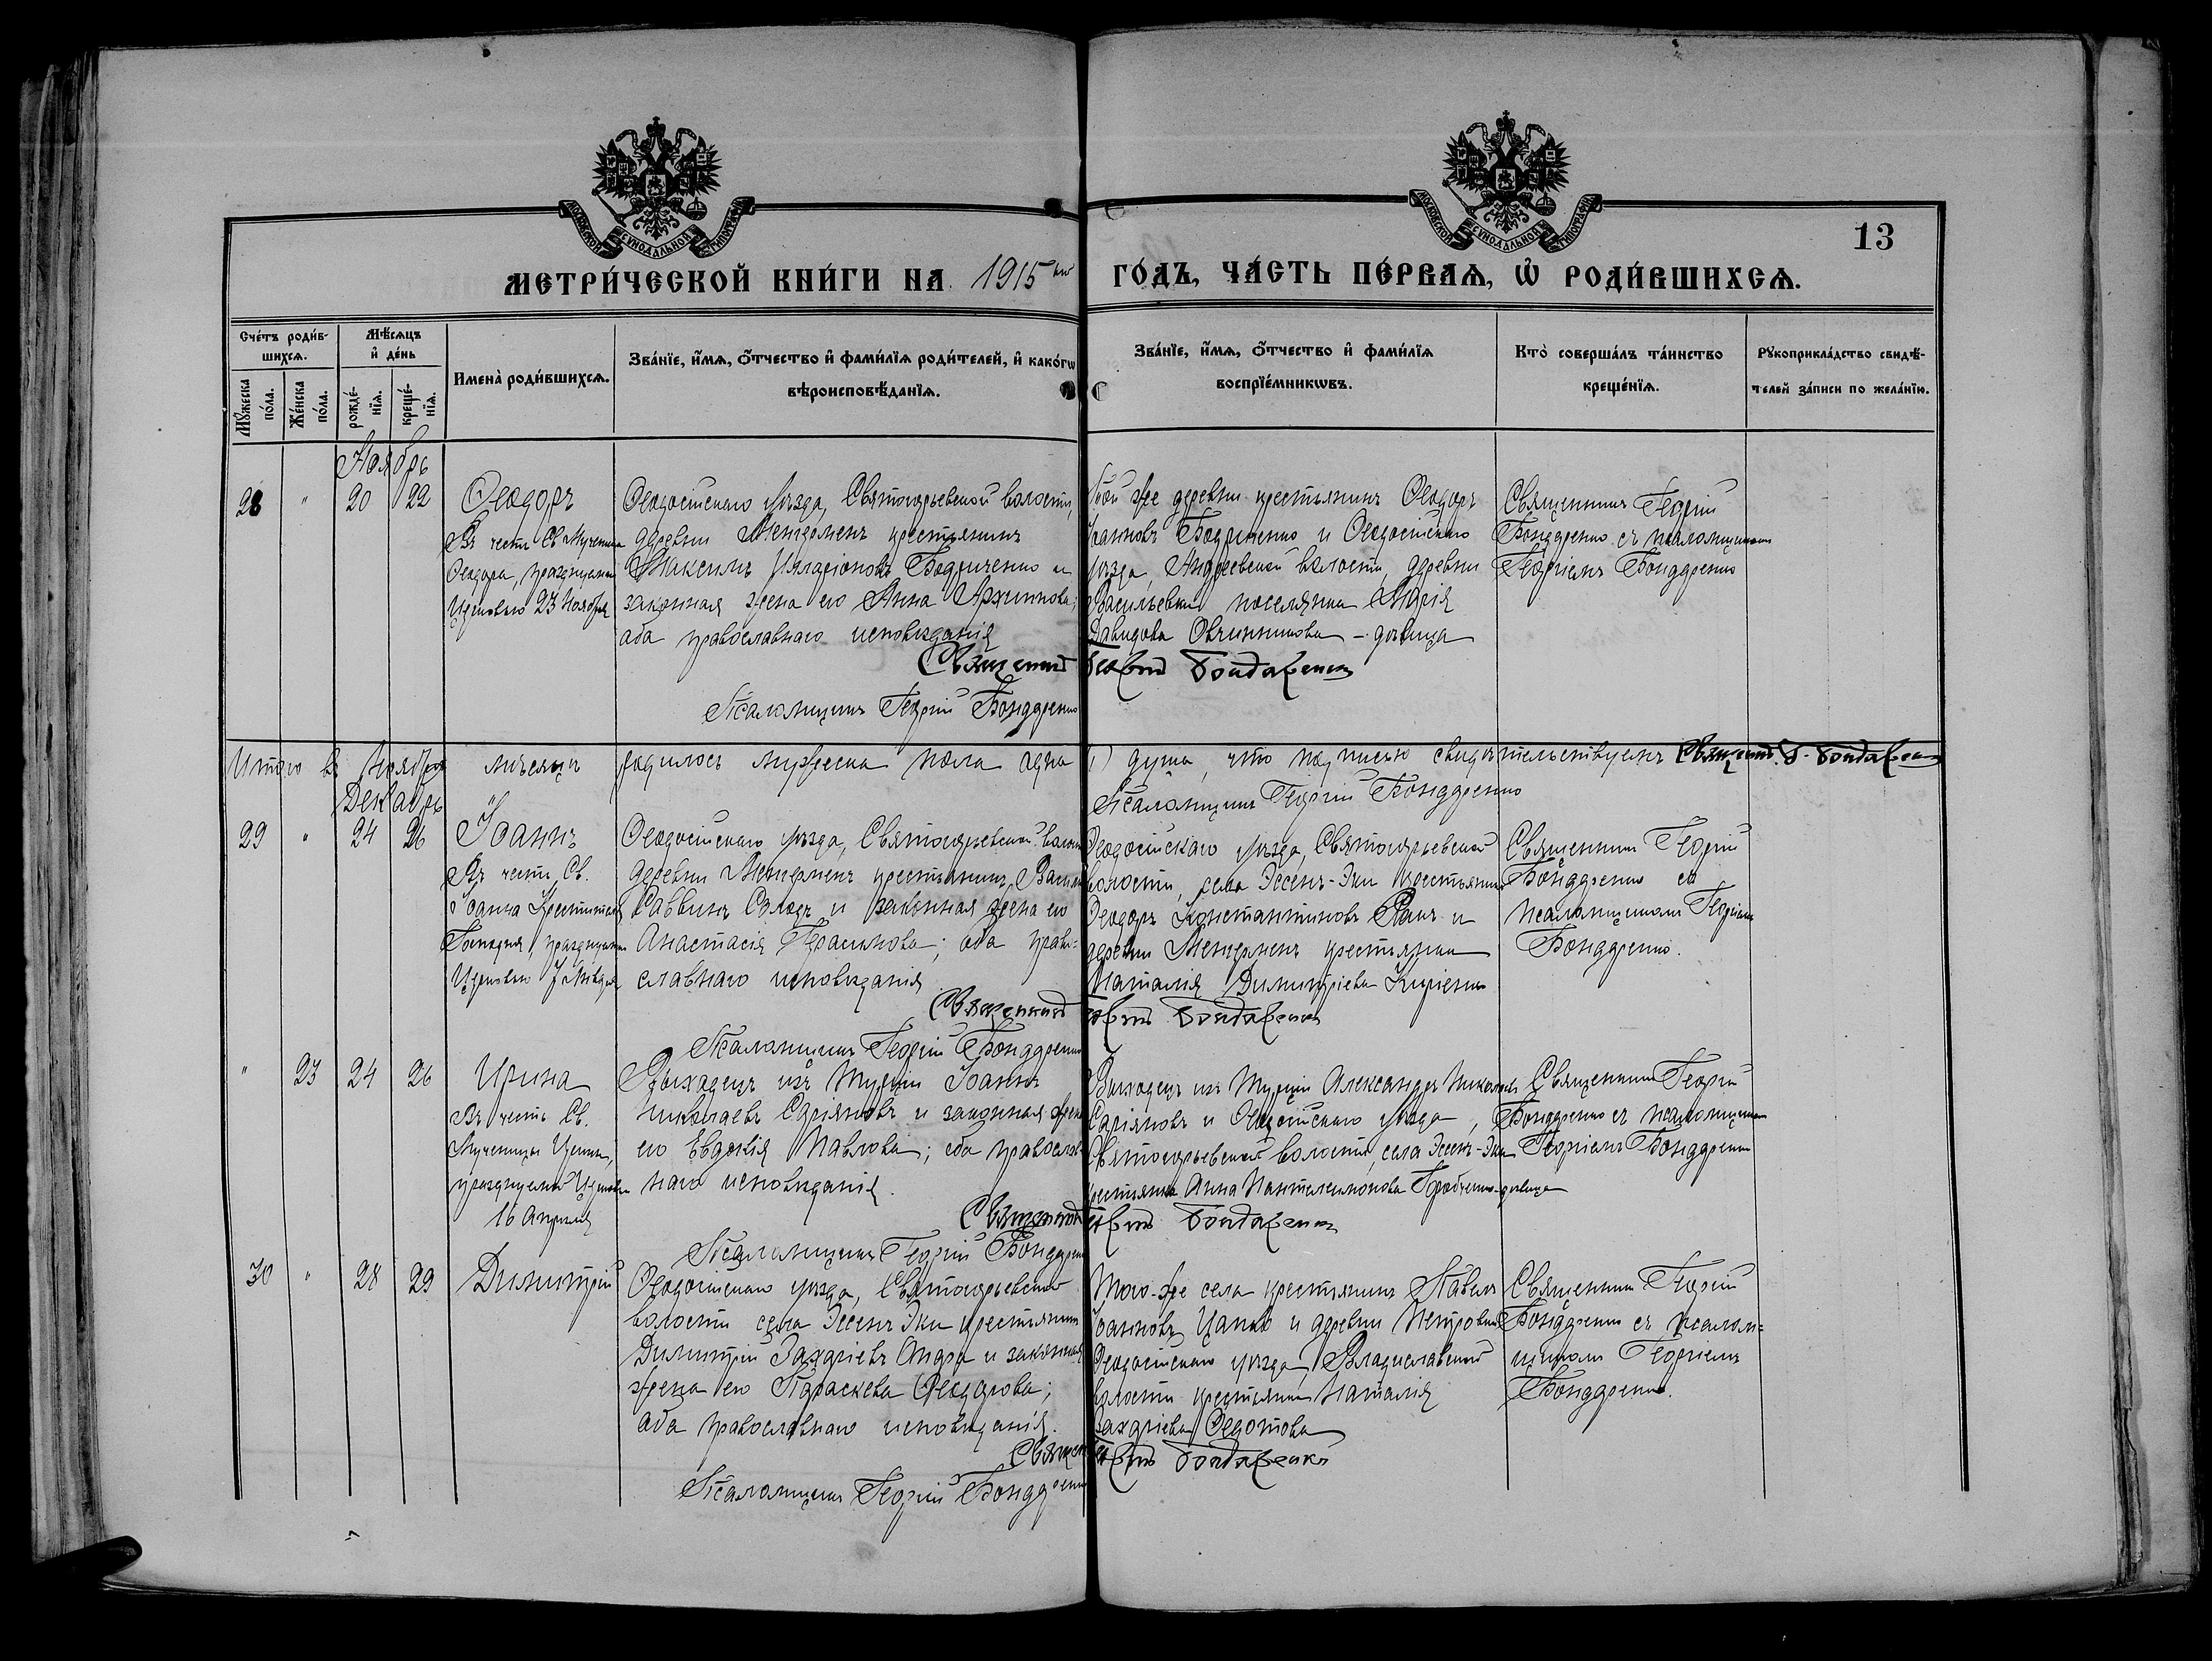 МОСКОВСКОЙ СѴНОДАЛЬНОЙ ТИПОГРАФІИ
МОСКОВСКОЙ СѴНОДАЛЬНОЙ ТИПОГРАФІИ
13
МЕТРИ́ЧЕСКОЙ КНИ́ГИ НА 1915 ый ГО́ДЪ, ЧА́СТЬ ПЕ́РВАѦ, Ѡ҆ РОДИ́ВШИХСѦ.
Сче́тъ роди́в-
шихсѧ.
Мꙋ́жеска по́ла.
Же́нска по́ла.
Мѣ́сѧцъ
и҆ де́нь
рожде́-
нїѧ.
креще́-
нїѧ.
Имена̀ роди́вшихсѧ.
Зва́нїе, и҆́мѧ, ѻ҆́тчество и҆ фами́лїѧ роди́телей, и҆ како́гѡ
вѣроисповѣ́данїѧ.
Зва́нїе, и҆́мѧ, ѻ҆́тчество и҆ фами́лїѧ
воспрїе́мникѡвъ.
Кто̀ соверша́лъ та́инство
креще́нїѧ.
Рꙋкоприкла́дство свидѣ́-
телей за́писи по жела́нїю.
Ноябрь
28 " 20 22
Ѳеодоръ
Въ честь Св. Мученика
Ѳеодора, празднуемаго
Церковью 23 Ноября
Ѳеодосійскаго уѣзда, Святогорьевской волости,
деревни Менгерменъ крестьянинъ
Максимъ Иларіоновъ Бодриченко и
законная жена его Анна Архипова;
оба православнаго исповѣданія
Священникъ Георгій Бондаренко
Псаломщикъ Георгій Бондаренко
Той же деревни крестьянинъ Ѳеодоръ
Іоанновъ Бодриченко и Ѳеодосійскаго
уѣзда, Андреевской волости, деревни
Васильевки поселянка Марія
Давидова Овчинникова - дѣвица
Священникъ Георгій
Бондаренко съ псаломщикомъ
Георгіемъ Бондаренко
Итого въ Ноябрѣ мѣсяцѣ родилось мужеска пола одна (1) душа, что подписью свидѣтельствуемъ Священ. Г. Бондаренко
Псаломщикъ Георгій Бондаренко
Декабрь
29 " 24 26
Іоаннъ
Въ честь Св.
Іоанна Крестителя
Господня, празднуемаго
Церковью 7 Января
Ѳеодосійскаго уѣзда, Святогорьевской волости
деревни Менгерменъ крестьянинъ Василій
Саввинъ Солодъ и законная жена его
Анастасія Герасимова; оба право-
славнаго исповѣданія
Священникъ Георгій Бондаренко
Псаломщикъ Георгій Бондаренко
Ѳеодосійскаго уѣзда, Святогорьевской
волости, села Эссенъ-Эки крестьянинъ
Ѳеодоръ Константиновъ и
деревни Менгерменъ крестьянка
Наталія Димитріева
Священникъ Георгій
Бондаренко съ
псаломщикомъ Георгіемъ
Бондаренко.
" 23 24 26
Ирина
Въ честь Св.
Мученицы Ирины,
празднуемой Церковью
16 Апрѣля
Выходецъ изъ Турціи Іоаннъ
Николаевъ Саріяновъ и законная жена
его Евдокія Павлова; оба православ-
наго исповѣданія.
Священникъ Георгій Бондаренко
Псаломщикъ Георгій Бондаренко
Выходецъ изъ Турціи Александръ Николаевъ
Саріяновъ и Ѳеодосійскаго уѣзда,
Святогорьевской волости, села Эссенъ-Эки
крестьянка Анна Пантелеимонова - дѣвица
Священникъ Георгій
Бондаренко съ псаломщикомъ
Георгіемъ Бондаренко
30 " 28 29
Димитрій
Ѳеодосійскаго уѣзда, Святогорьевской
волости села Эссенъ Эки крестьянинъ
Димитрій Захаріевъ и законная
жена его Параскева Ѳеодорова;
оба православнаго исповѣданія.
Священникъ Георгій Бондаренко
Псаломщикъ Георгій Бондаренко
Того-же села крестьянинъ Павелъ
Іоанновъ Цапко и деревни Петровки
Ѳеодосійскаго уѣзда, Владиславской
волости крестьянка Наталія
Захаріева Ѳедотова
Священникъ Георгій
Бондаренко съ псалом=
щикомъ Георгіемъ
Бондаренко.